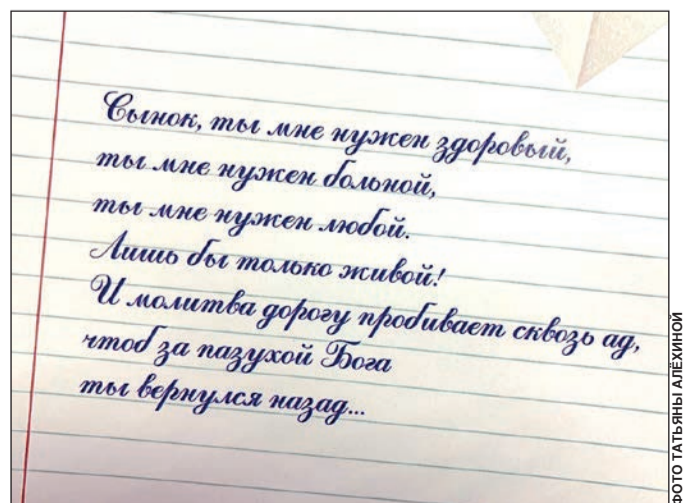 Сынок, ты мне нужен здоровый,
ты мне нужен больной,
ты мне нужен любой.
Лишь бы только живой!
И молитва дорогу пробивает сквозь ад,
чтоб за пазухой Бога
ты вернулся назад...
ФОТО ТАТЬЯНЫ АЛЁХИНОЙ